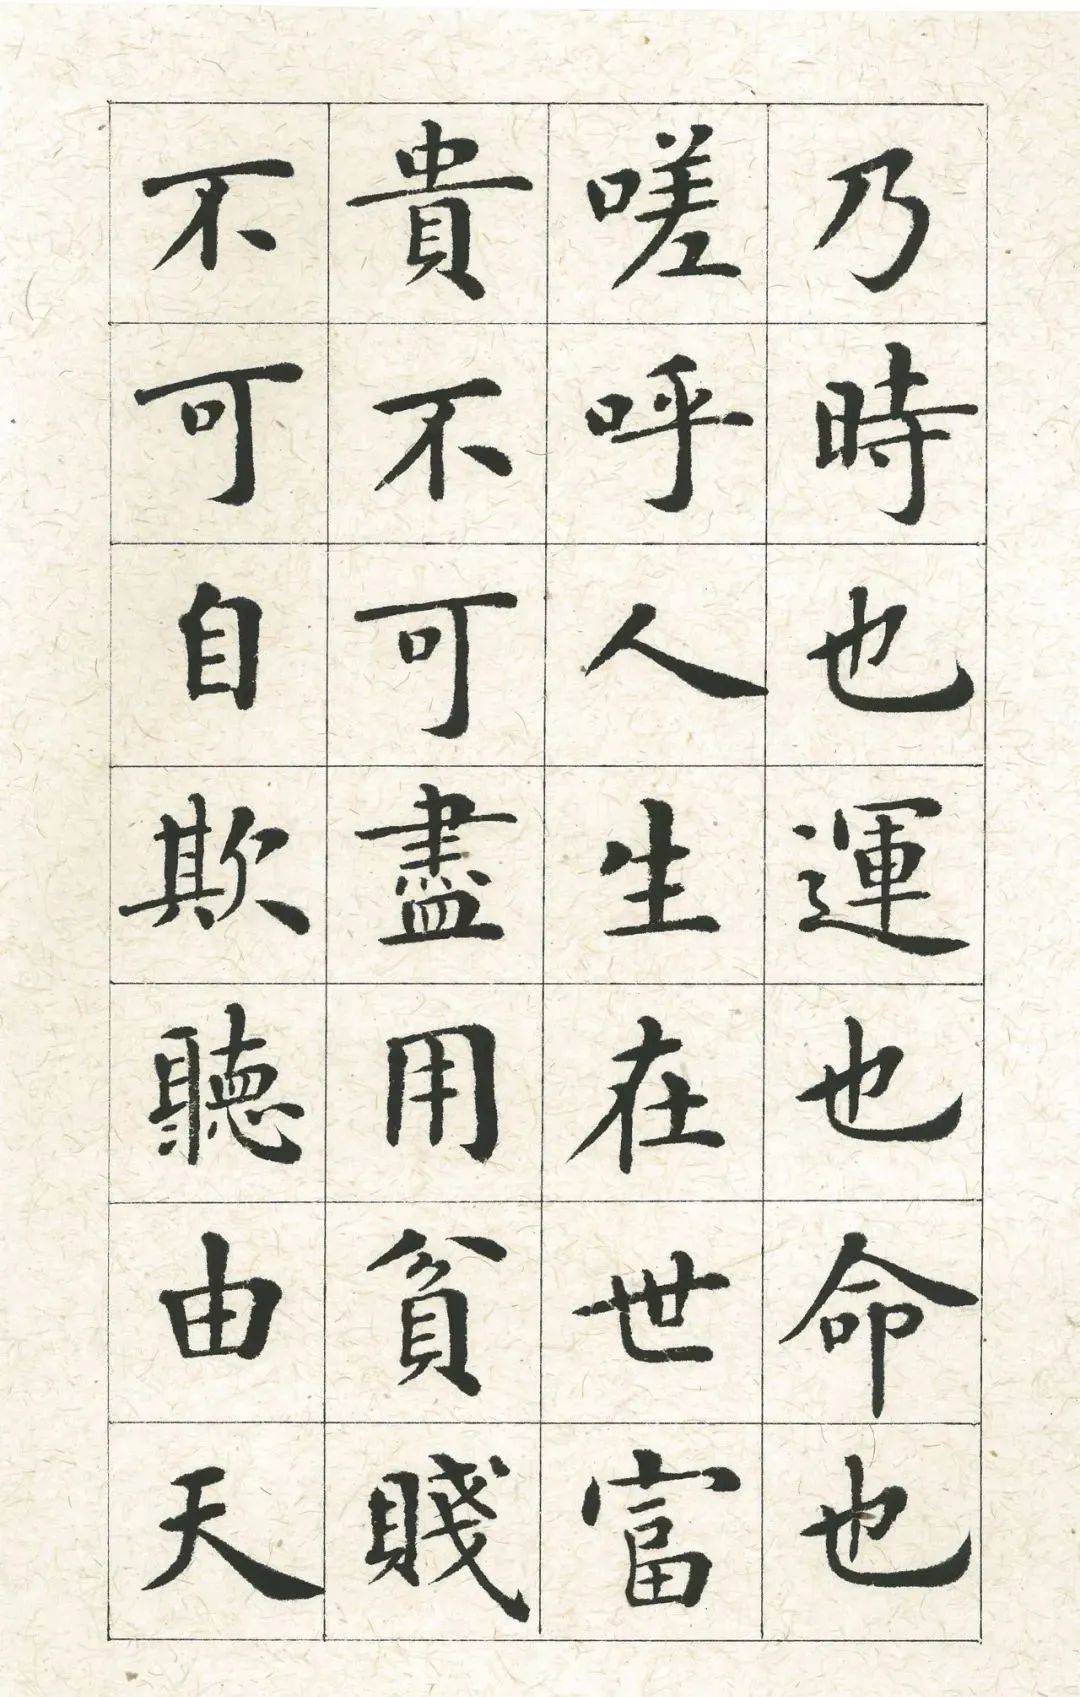 乃時也運也命也
嗟呼人生在世富
貴不可盡用貧賤
不可自欺聽由天